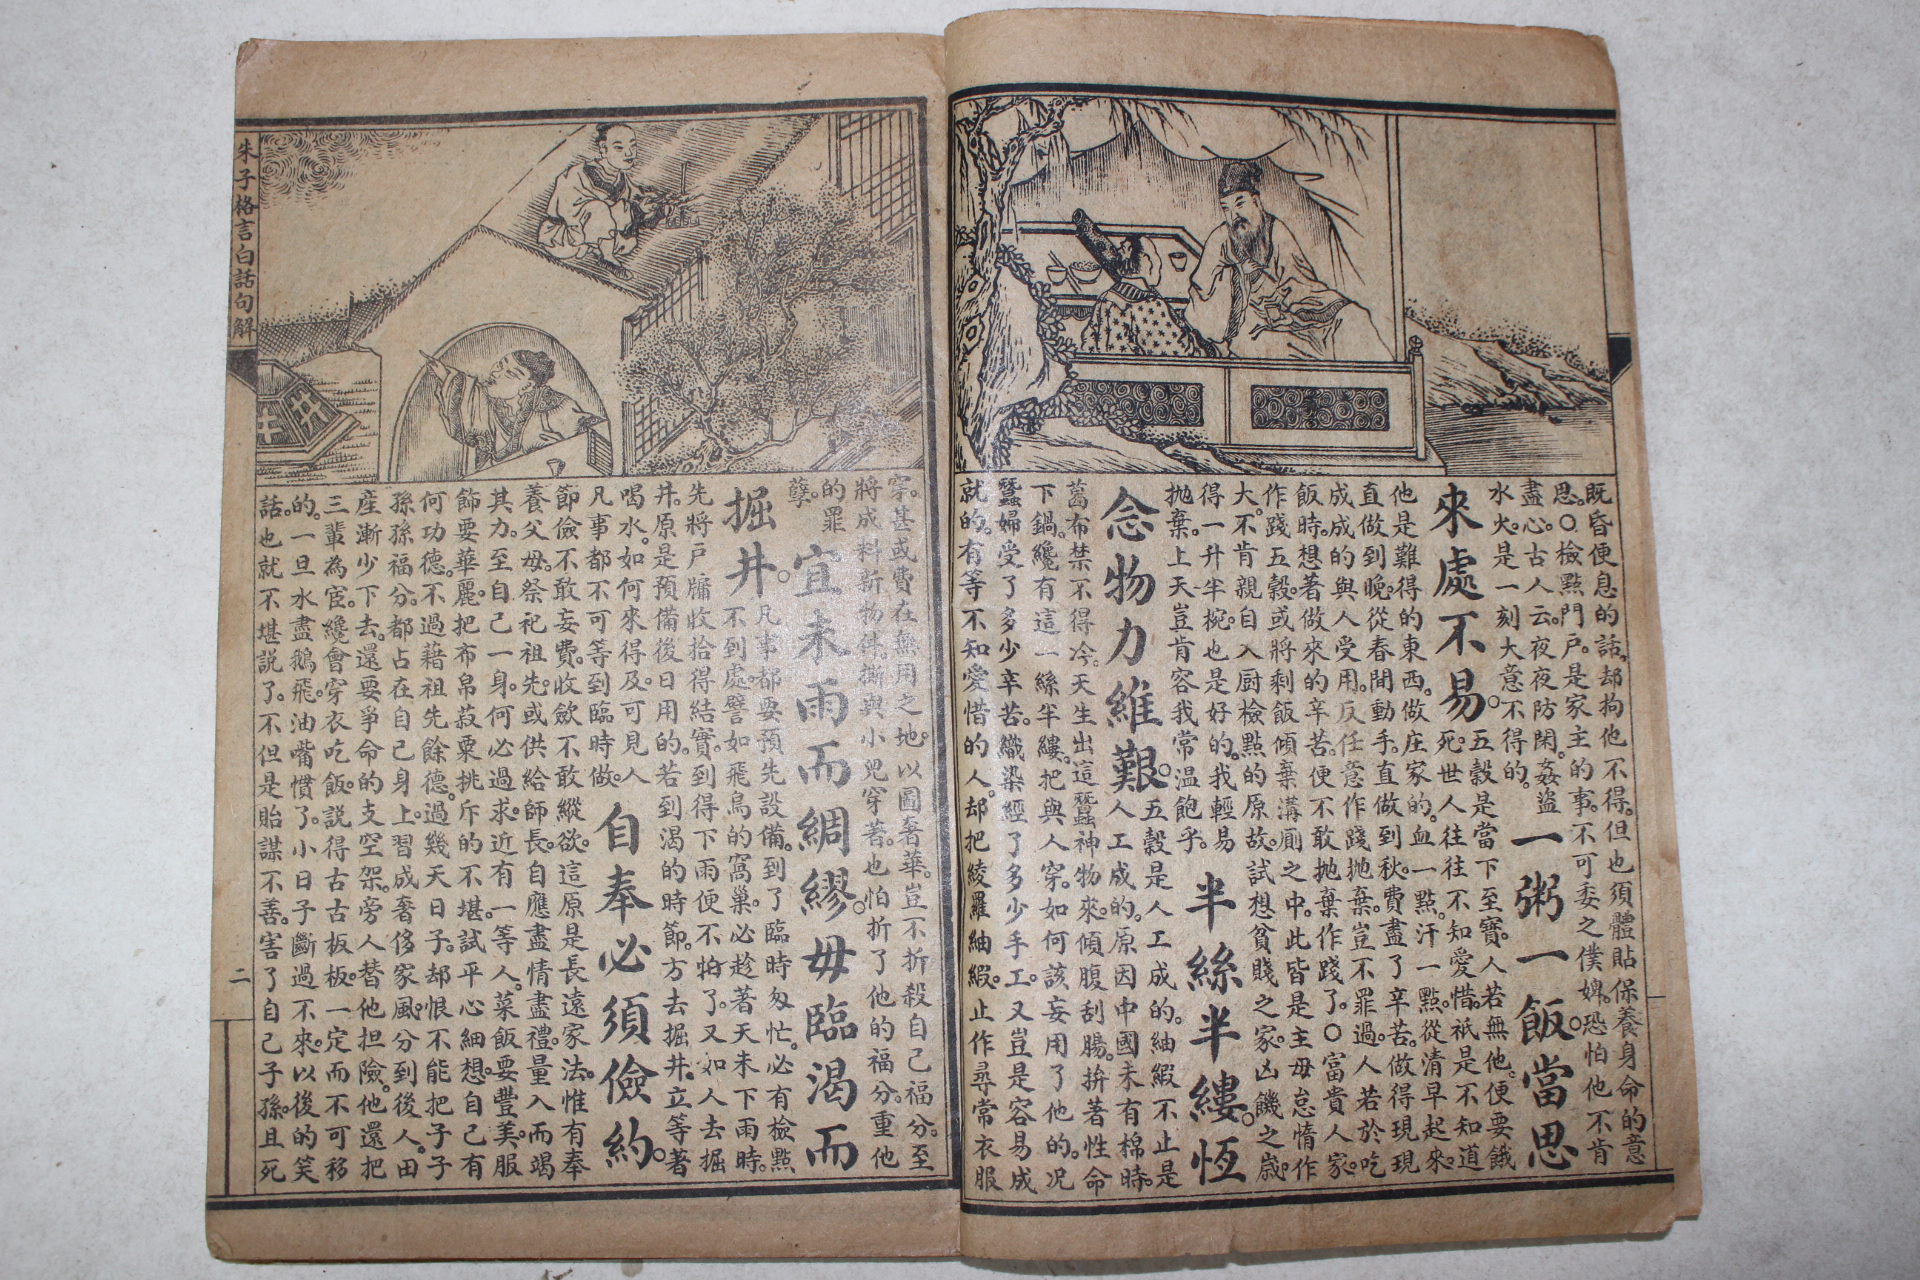 既昏便息的話。却拘他不得。但也須體貼保養身命的意
思。〇檢點門戶。是家主的事。不可委之僕婢。恐怕他不肯
盡心。古人云。夜夜防閑。姦盜
水火。是一刻大意不得的。
一粥一飯當思
來處不易。
五穀是當下至寶。人若無他。便要餓
死。世人往往不知愛惜。衹是不知道
他是難得的東西。做庄家的。血一點。汗一點。從清早起來。
直做到晚。從春間動手。直做到秋。費盡了辛苦。做得現現
成成的與人受用。反任意作踐拋棄。豈不罪過。人若於吃
飯時。想著做來的辛苦。便不敢拋棄作踐了。〇富貴人家。
作踐五穀。或將剩飯傾棄溝厠之中。此皆是主母怠惰作
大。不肯親自入厨檢點的原故。試想貧賤之家。凶饑之歲。
得一升半椀。也是好的。我輕易
拋棄。上天豈肯容我常溫飽乎。
半絲半縷。恆
念物力維艱。
五穀是人工成的。紬緞不止是
人工成的。原因中國未有棉時。
葛布禁不得冷。天生出這蠶神物來。傾腹刮腸。拚著性命
下鍋。纔有這一絲半縷。把與人穿。如何該妄用了他的。况
蠶婦受了多少辛苦。織染經了多少手工。又豈是容易成
就的。有等不知愛惜的人。却把綾羅紬緞。止作尋常衣服
穿。甚或費在無用之地。以圖奢華。豈不折殺自己福分。至
將成料新物件。撕與小兒穿著。也怕折了他的福分。重他
的罪
孽。
宜未雨而綢繆。毋臨渴而
掘井。
凡事都要預先設備。到了臨時匆忙。必有檢點
不到處。譬如飛鳥的窩巢。必趁著天未下雨時。
先將戶牖收拾得結實。到得下雨便不怕了。又如人去掘
井。原是預備後日用的。若到渴的時節。方去掘井。立等著
喝水。如何來得及。可見人
凡事都不可等到臨時做。
自奉必須儉約。
節儉不敢妄費。收斂不敢縱欲。這原是長遠家法。惟有奉
養父母。祭祀祖先。或供給師長。自應盡情盡禮。量入而竭
其力。至自己一身。何必過求。近有一等人。菜飯要豐美。服
飾要華麗。把布帛菽粟挑斥的不堪。試平心細想。自己有
何功德。不過藉祖先餘德。過幾天日子。却恨不能把子子
孫孫福分。都占在自己身上。習成奢侈家風。分到後人。田
産漸少下去。還要爭命的支空架。旁人替他担險。他還把
三輩為宦。纔會穿衣吃飯。説得古古板板。一定而不可移
的。一旦水盡鵝飛。油嘴慣了。小日子斷過不來。以後的笑
話。也就不堪説了。不但是貽謀不善。害了自己子孫。且死
朱子格言白話句解
二